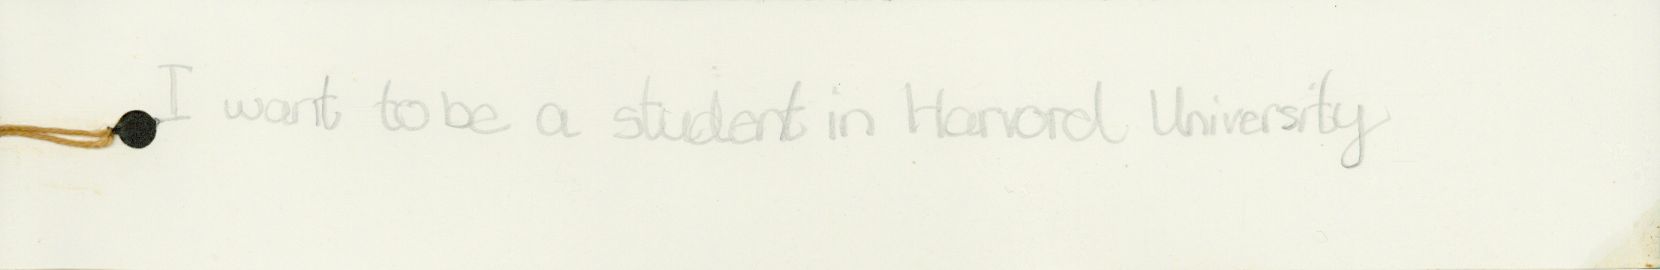 I want to be a student in Harvord University